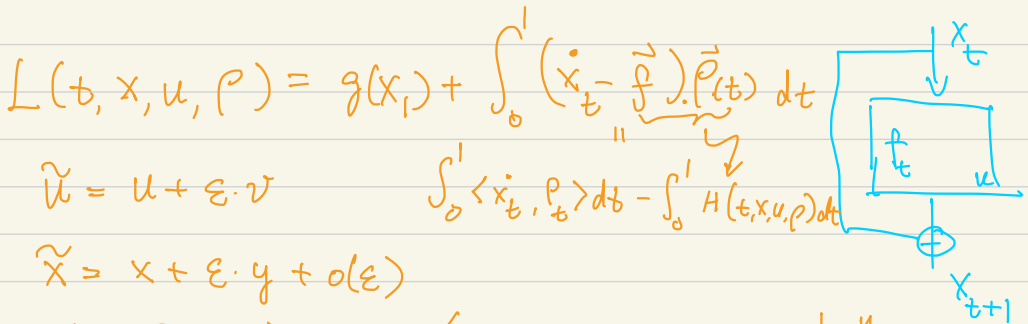 L(t, x, u, p) = g(x₁) + ∫₀¹ (ẋ_t - f⃗).p⃗(t) dt
"
ũ = u + ε·v
∫₀¹ <ẋ_t, p_t>dt - ∫₀¹ H(t,x,u,p)dt
x̃ = x + ε·y + o(ε)
x_t
f_t
u
+
x_{t+1}